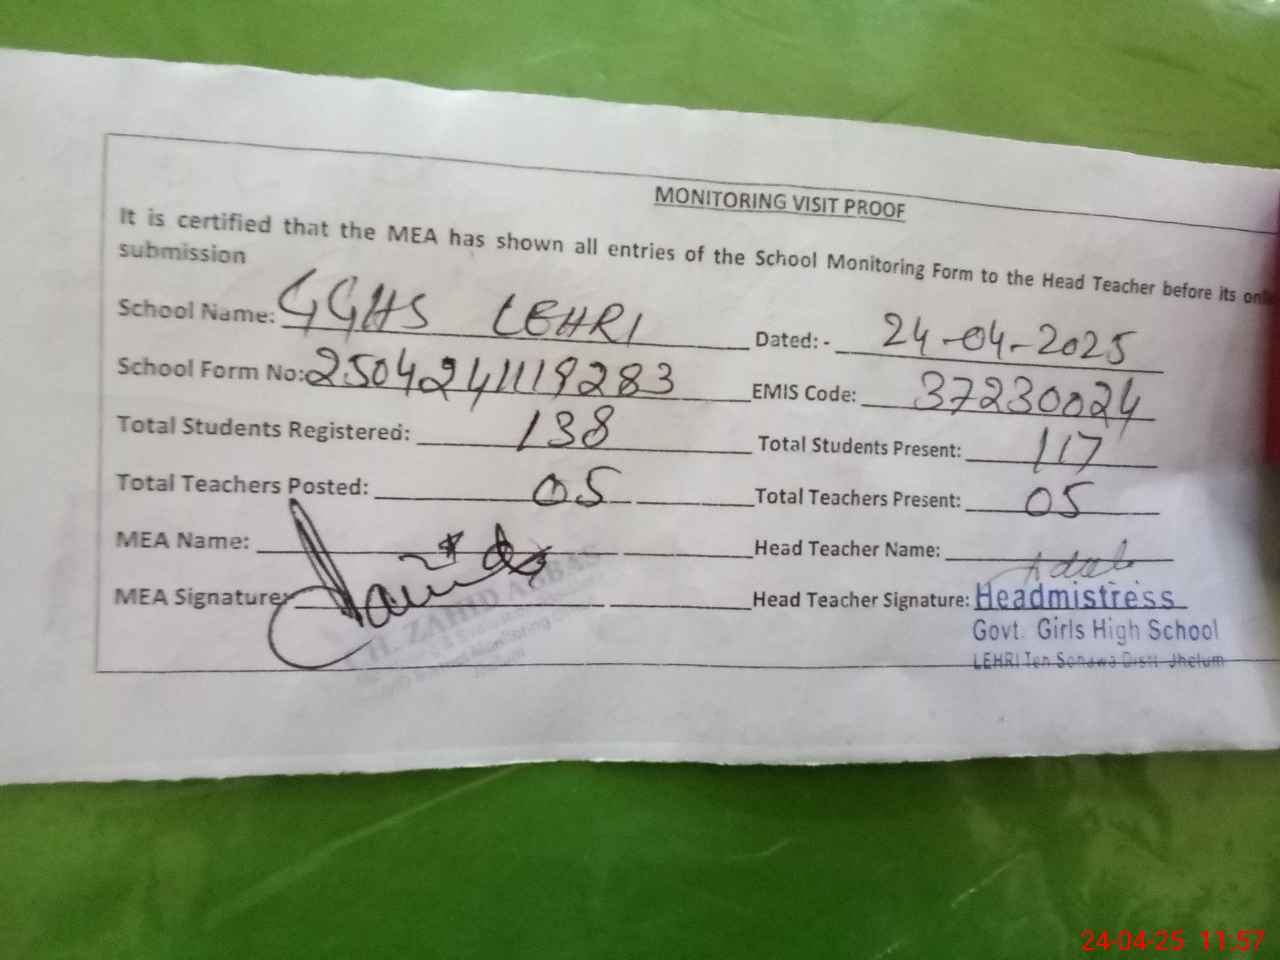 MONITORING VISIT PROOF
It is certified that the MEA has shown all entries of the School Monitoring Form to the Head Teacher before its
submission
School Name: GGHS LEHRI Dated: - 24-04-2025
School Form No: 2504241119283 EMIS Code: 37230024
Total Students Registered: 138 Total Students Present: 117
Total Teachers Posted: 05 Total Teachers Present: 05
MEA Name: Head Teacher Name:
MEA Signature: Head Teacher Signature: Headmistress
H. ZAHID ABBAS
Govt. Girls High School
LEHRI Teh Sohawa Distt Jhelum
24-04-25 11:57